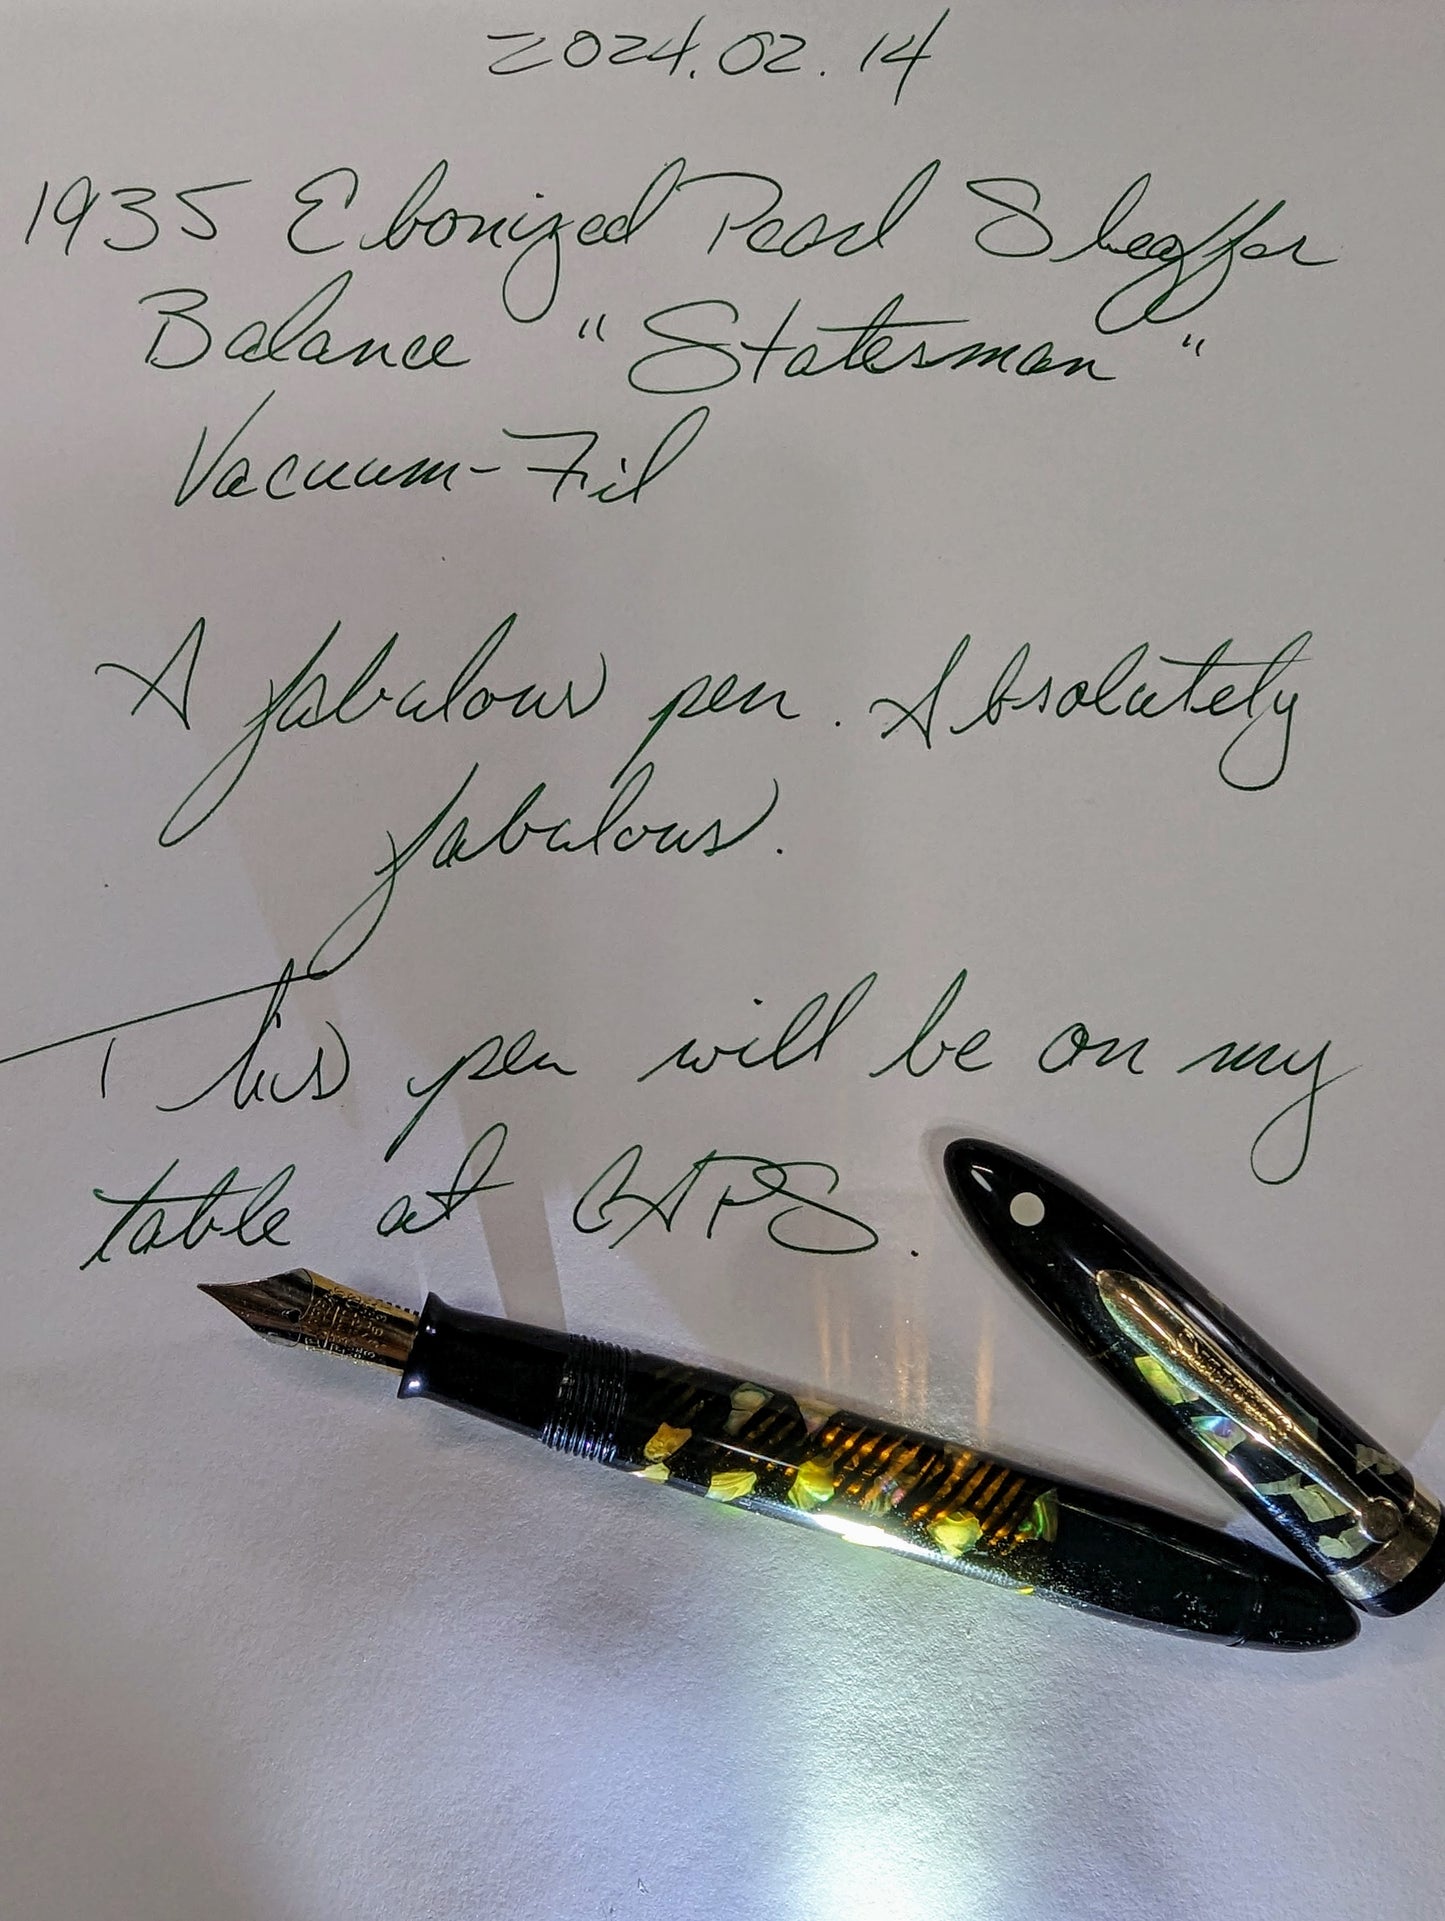 2024.02.14
1935 Ebonized Pearl Sheaffer
Balance "Statesman"
Vacuum-Fil
A fabulous pen. Absolutely
fabulous.
This pen will be on my
table at CAPS.